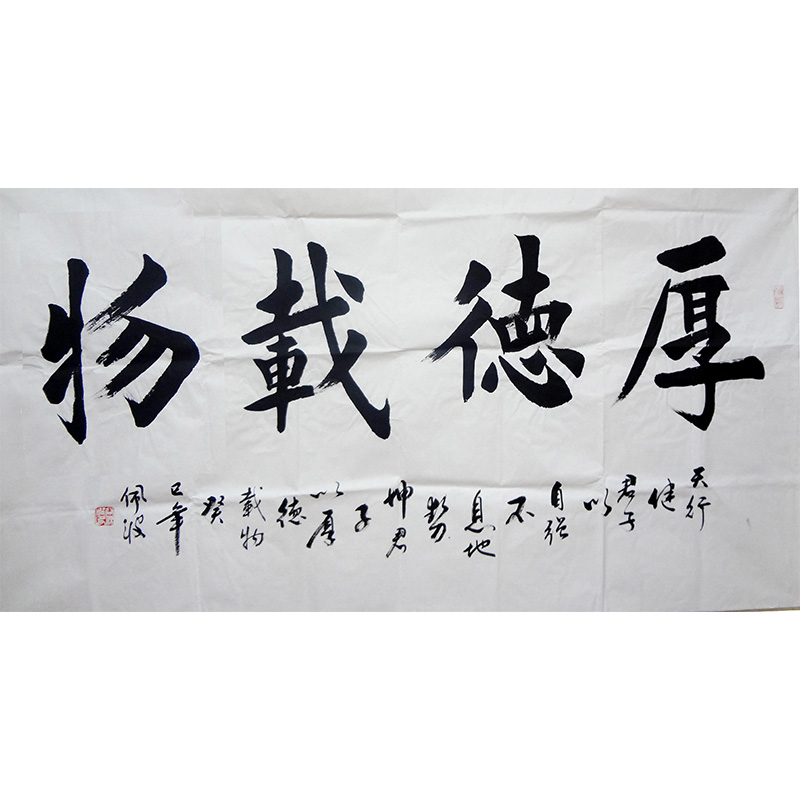 厚德載物
天行
健
君子
以
自强
不
息地
勢
坤君
子
以厚
德
載物
癸
巳年
佩波